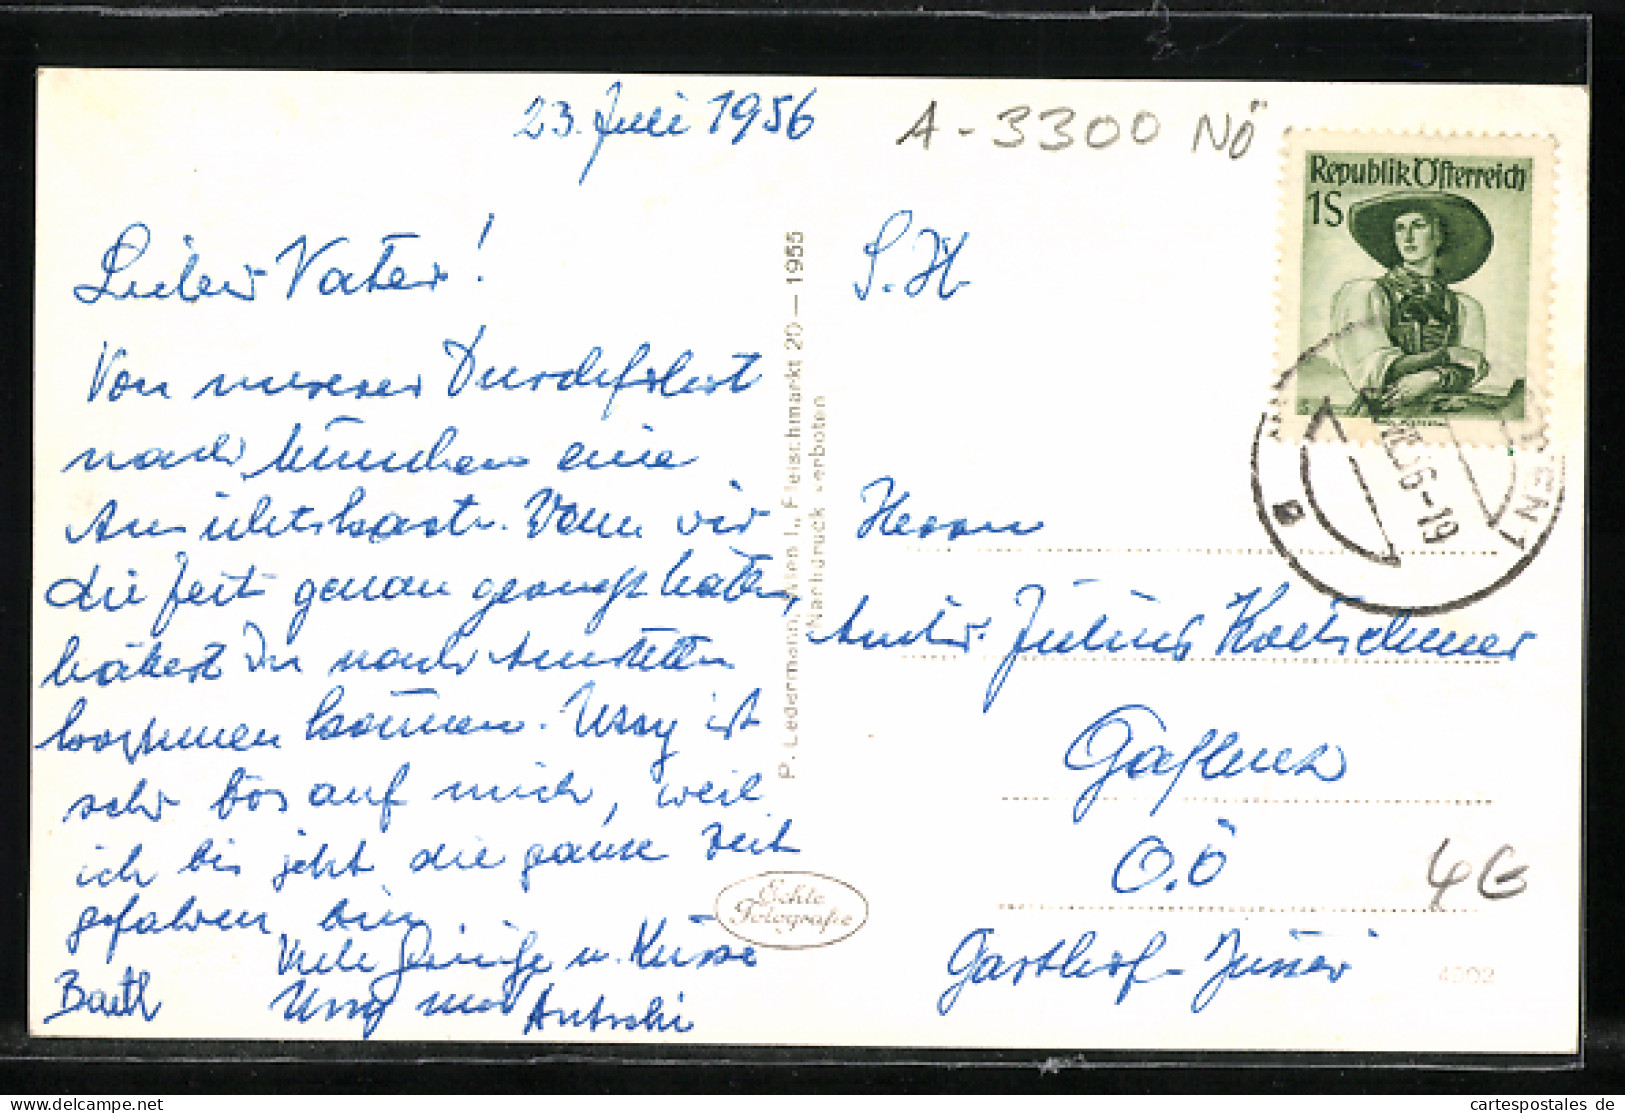 23. Juli 1956
A-3300 NÖ
Republik Österreich
1S
Lieber Vater!
Von unserer Durchfahrt
nach München eine
Ansichtskarte. Wenn wir
die Zeit genau gewußt hätten,
hättest Du nach Amstetten
kommen können. Ussy ist
sehr bös auf mich, weil
ich bis jetzt die ganze Zeit
gefahren bin.
Viele Grüße u. Küsse
Ussy und
Barth
P. Ledermann, Wien I., Fleischmarkt 20 — 1955
Nachdruck verboten
Echte
Fotografie
S. H.
Herrn
Julius
Gaflenz
O.Ö
Gasthof
4€
4902
VII.56-19
cartespostales de